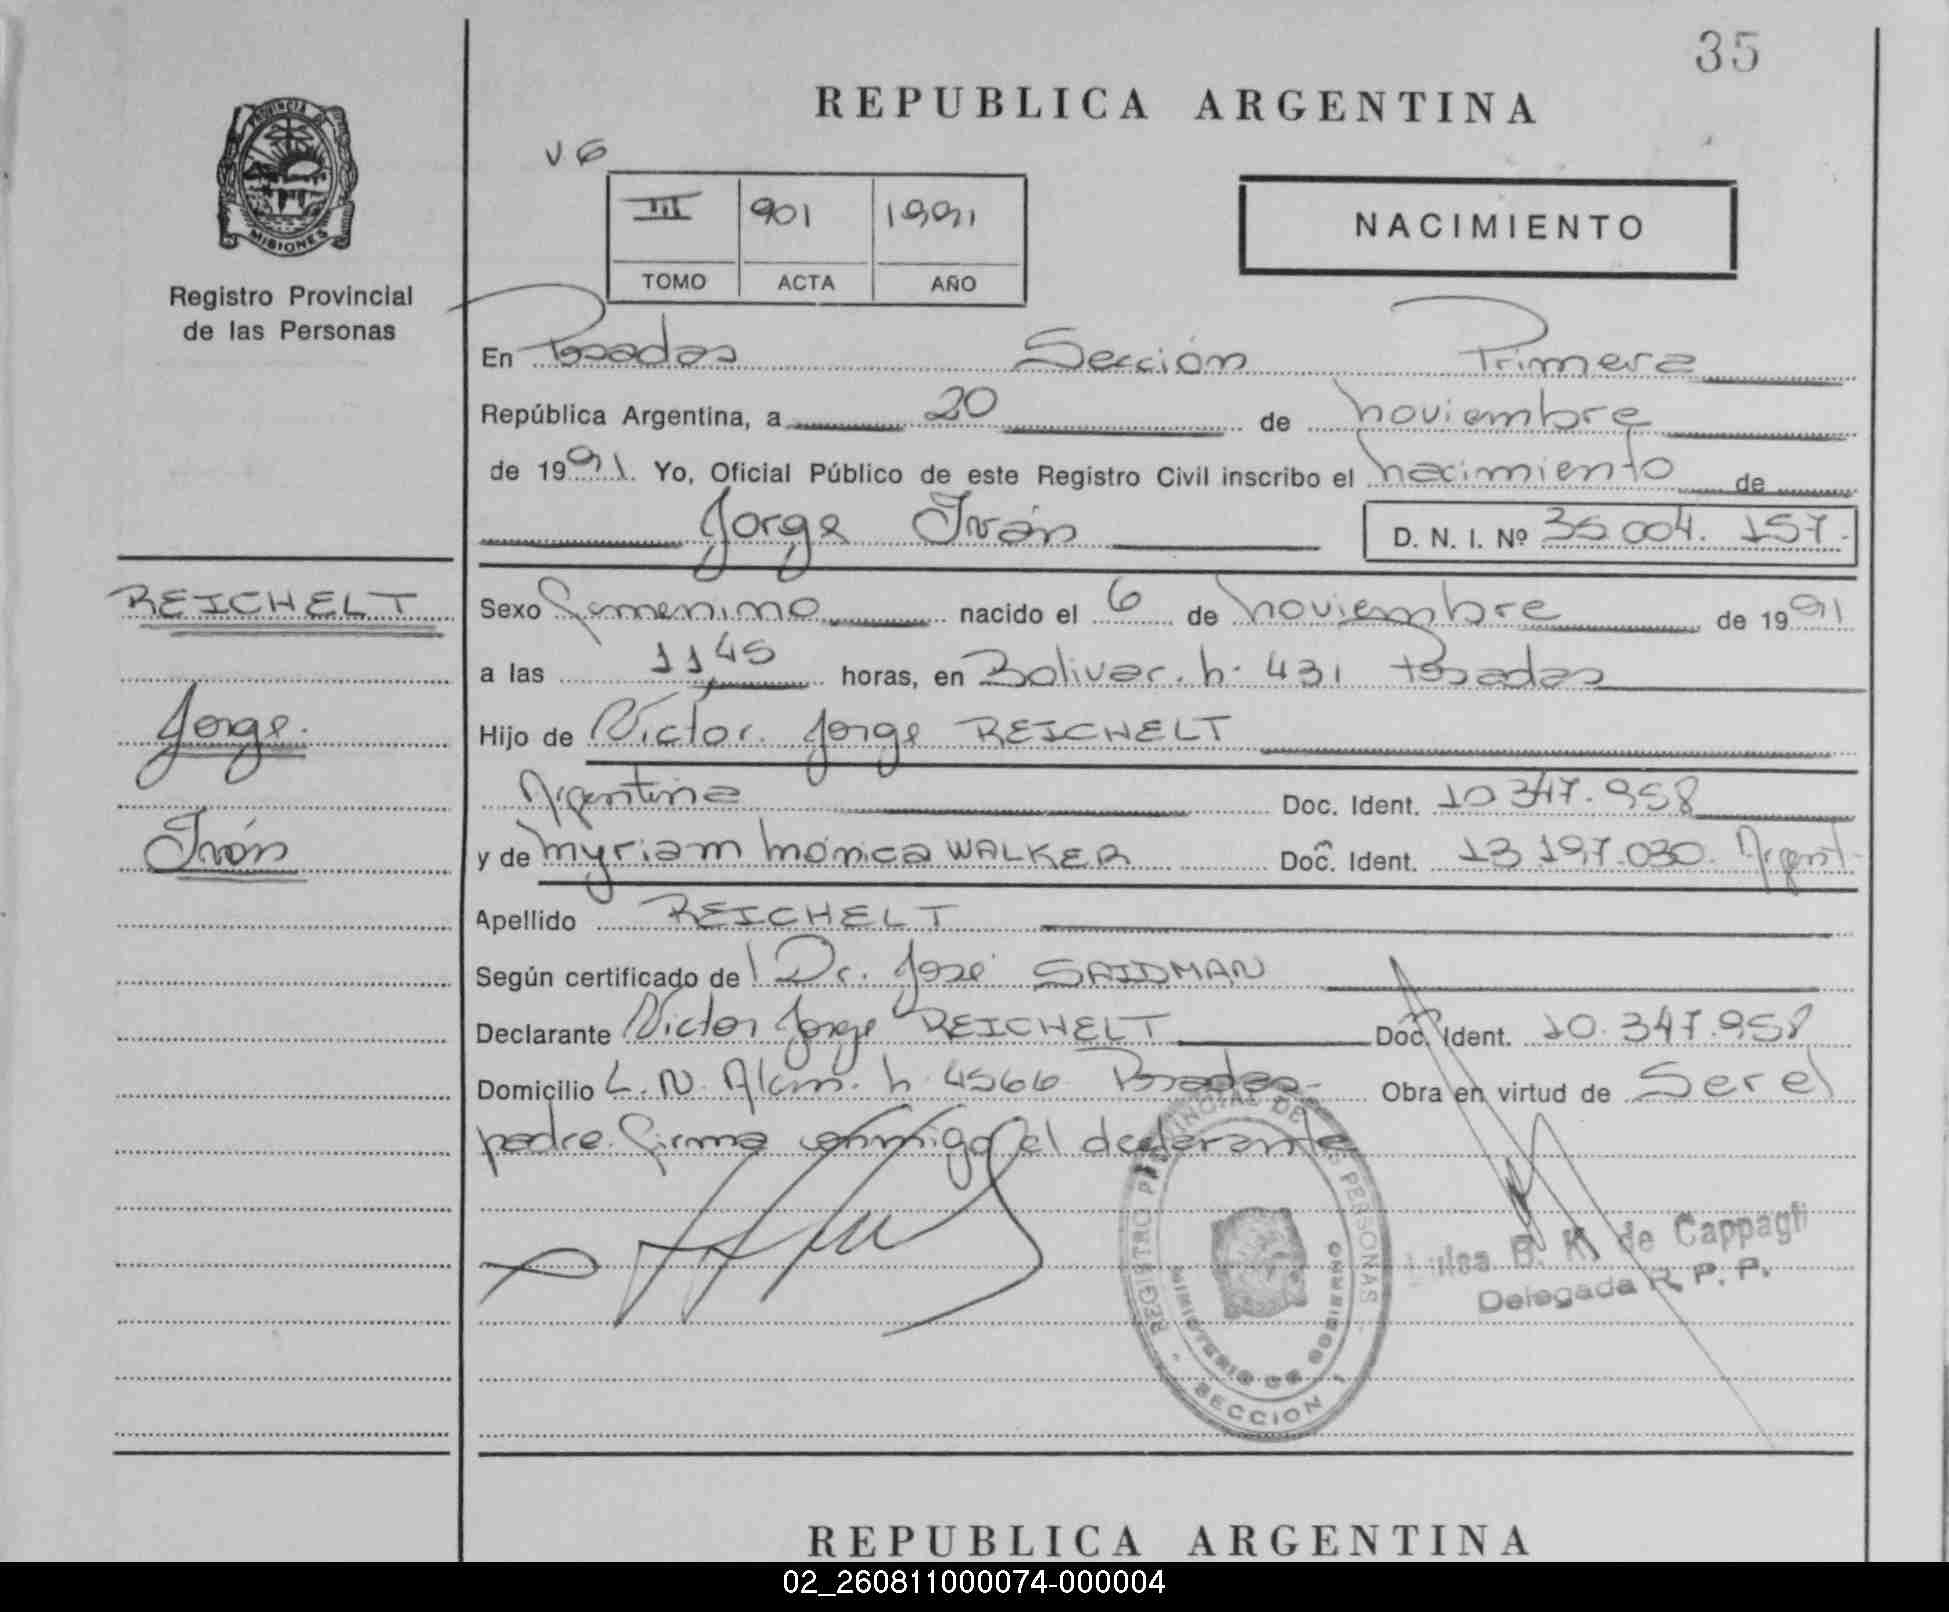 35
REPUBLICA ARGENTINA
V6
NACIMIENTO
III 901 1991
TOMO ACTA AÑO
PROVINCIA DE
MISIONES
Registro Provincial
de las Personas
En Posadas Sección Primera
República Argentina, a 20 de noviembre
de 1991. Yo, Oficial Público de este Registro Civil inscribo el nacimiento de
Jorge Iván D. N. I. Nº 35.004.157.
REICHELT
Jorge.
Iván
Sexo femenino nacido el 6 de noviembre de 1991
a las 11,45 horas, en Bolivar. h. 431 Posadas
Hijo de Víctor Jorge REICHELT
Argentina Doc. Ident. 10.347.958
y de Myriam Mónica WALKER Doc. Ident. 13.197.030. Argent.
Apellido REICHELT
Según certificado de Dr. José SAIDMAN
Declarante Victor Jorge REICHELT Doc. Ident. 10.347.958
Domicilio L. N. Alem. h. 4566 Posadas- Obra en virtud de Ser el
padre. firma conmigo el declarante
REGISTRO PROVINCIAL DE LAS PERSONAS
MINISTERIO DE GOBIERNO
SECCION 1
B. K. de Cappagli
Delegada R. P. P.
REPUBLICA ARGENTINA
02_260811000074-000004